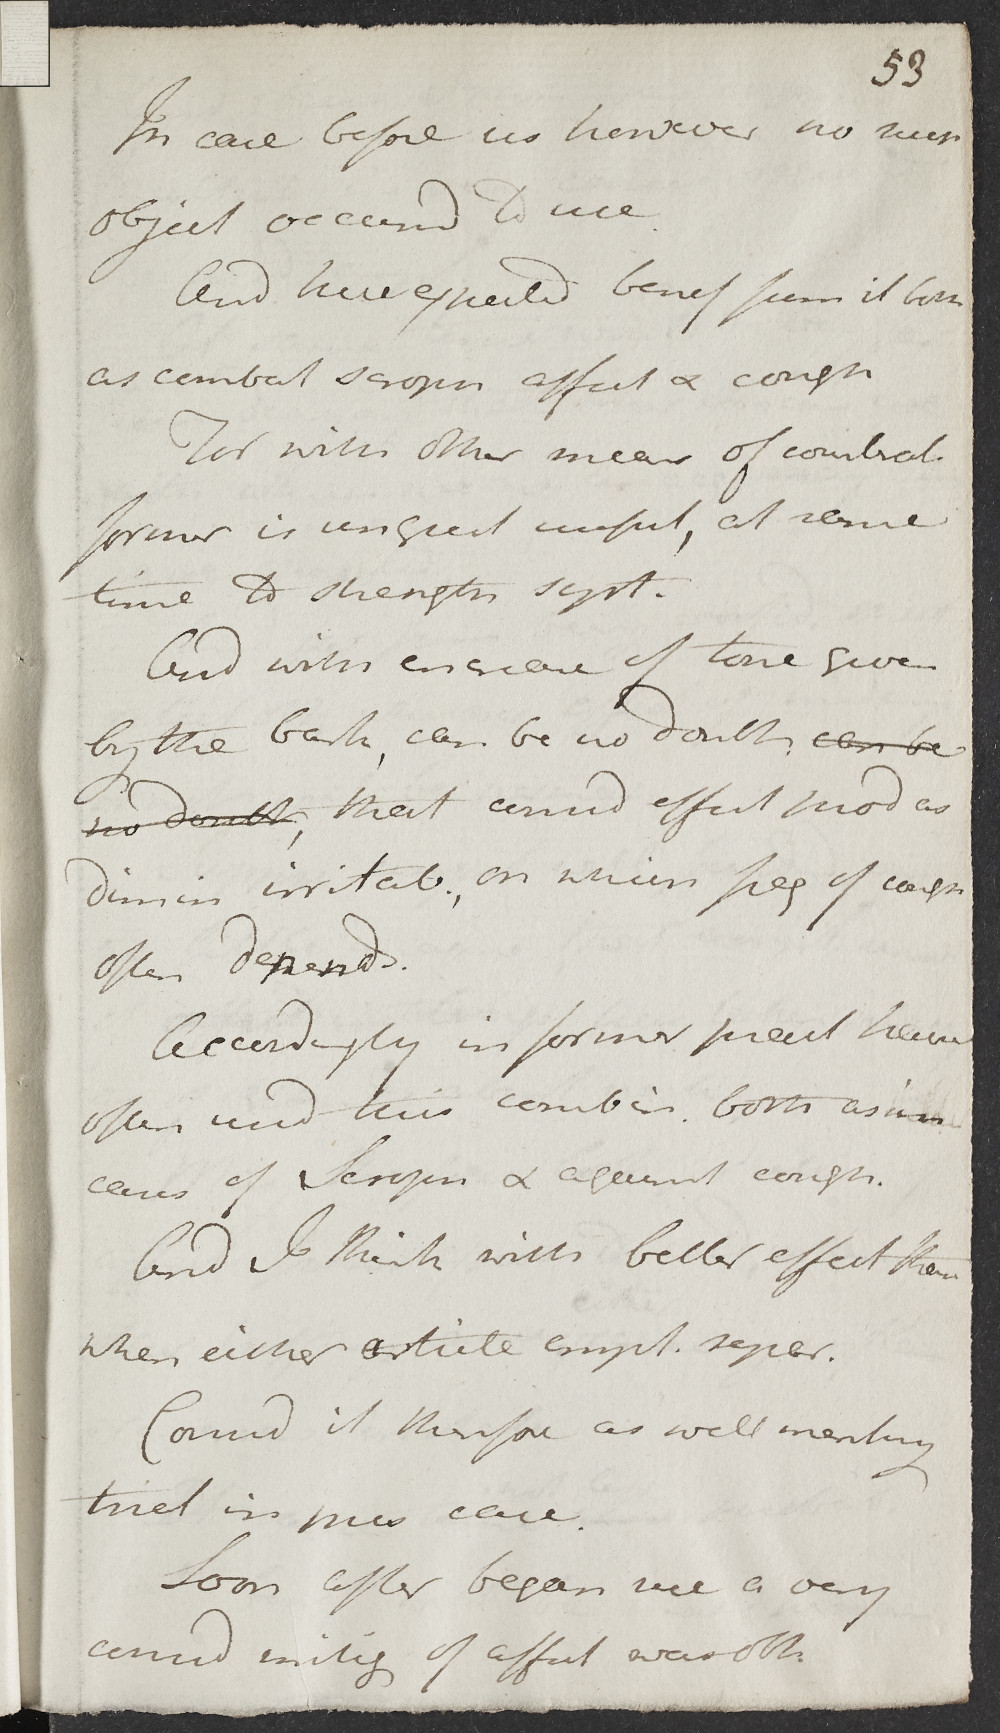 53
In case before us however no such
object occurrd to me.
And here expected benef from it both
as combat scroph affect & cough
For with other means of combat
former is unquest usefull, at same
time to strength syst.
And with increase of tone given
by the bark, can be no doubt, can be
no doubt, that consid effect prod as
dimin irritab., on which freq of cough
often depends.
Accordingly in former pract have
often used this combin. both as in
cases of Scroph & against cough.
And I think with better effect than
when either article empl. separ.
Consid it therefore as well meriting
trial in pres case.
Soon after began use a very
consid mitig of affect was obt.